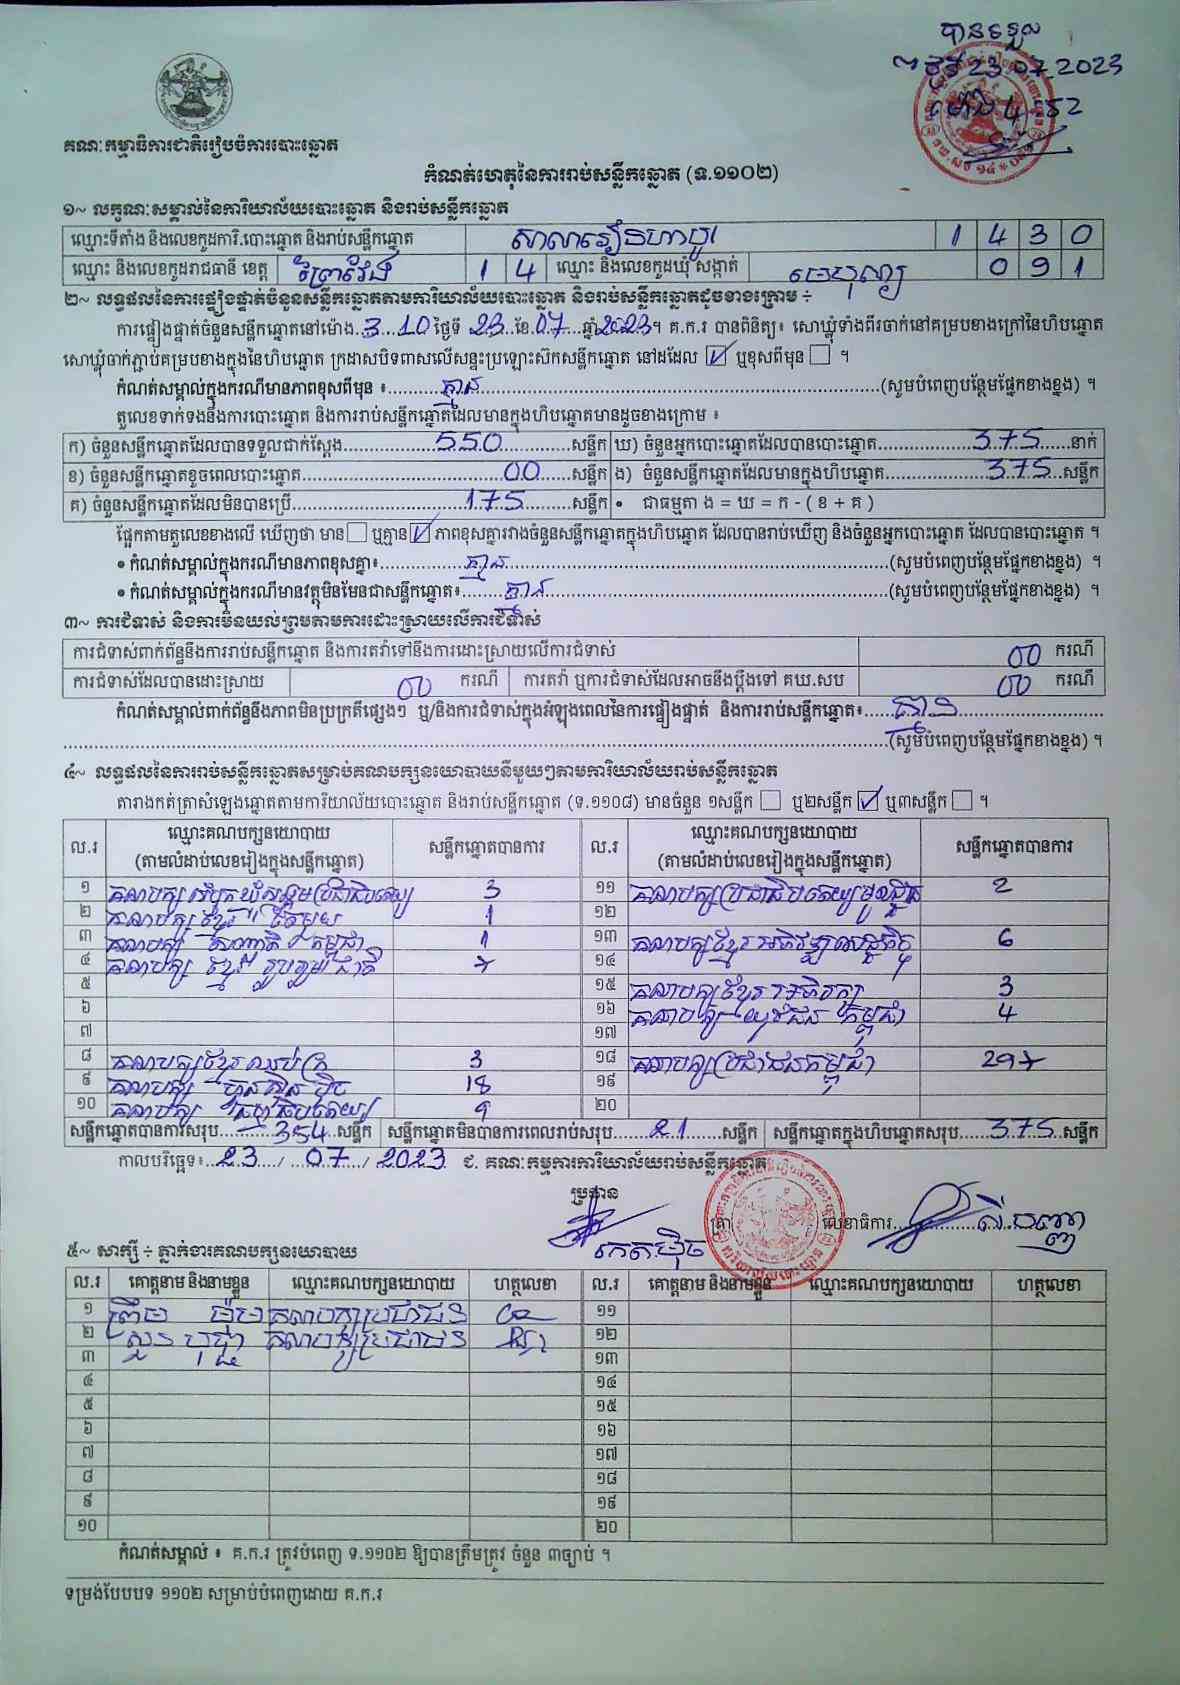 បានទទួល
ថ្ងៃទី 23.07.2023
ម៉ោង 4:52
គណៈកម្មាធិការជាតិរៀបចំការបោះឆ្នោត
កំណត់ហេតុនៃការរាប់សន្លឹកឆ្នោត (ទ.១១០២)
១~ លក្ខណៈសម្គាល់នៃការិយាល័យបោះឆ្នោត និងរាប់សន្លឹកឆ្នោត
ឈ្មោះទីតាំង និងលេខកូដការិ.បោះឆ្នោត និងរាប់សន្លឹកឆ្នោត សាលារៀន 1 4 3 0
ឈ្មោះ និងលេខកូដរាជធានី ខេត្ត ព្រៃវែង 1 4 ឈ្មោះ និងលេខកូដឃុំ សង្កាត់ មេបុណ្យ 0 9 1
២~ លទ្ធផលនៃការផ្ទៀងផ្ទាត់ចំនួនសន្លឹកឆ្នោតតាមការិយាល័យបោះឆ្នោត និងរាប់សន្លឹកឆ្នោតដូចខាងក្រោម ÷
ការផ្ទៀងផ្ទាត់ចំនួនសន្លឹកឆ្នោតនៅម៉ោង..3:10 ថ្ងៃទី 23 ខែ.07 ឆ្នាំ 2023។ គ.ក.រ បានពិនិត្យ៖ សោឃ្លុំទាំងពីរចាក់នៅគម្របខាងក្រៅនៃហិបឆ្នោត
សោឃ្លុំចាក់ភ្ជាប់គម្របខាងក្នុងនៃហិបឆ្នោត ក្រដាសបិទពាសលើសន្ទះប្រឡោះស៊កសន្លឹកឆ្នោត នៅដដែល ☑ ឬខុសពីមុន ☐ ។
កំណត់សម្គាល់ក្នុងករណីមានភាពខុសពីមុន ៖ គ្មាន (សូមបំពេញបន្ថែមផ្នែកខាងខ្នង) ។
តួលេខទាក់ទងនឹងការបោះឆ្នោត និងការរាប់សន្លឹកឆ្នោតដែលមានក្នុងហិបឆ្នោតមានដូចខាងក្រោម ៖
ក) ចំនួនសន្លឹកឆ្នោតដែលបានទទួលជាក់ស្តែង 550 សន្លឹក ឃ) ចំនួនអ្នកបោះឆ្នោតដែលបានបោះឆ្នោត 375 នាក់
ខ) ចំនួនសន្លឹកឆ្នោតខូចពេលបោះឆ្នោត 00 សន្លឹក ង) ចំនួនសន្លឹកឆ្នោតដែលមានក្នុងហិបឆ្នោត 375 សន្លឹក
គ) ចំនួនសន្លឹកឆ្នោតដែលមិនបានប្រើ 175 សន្លឹក • ជាធម្មតា ង = ឃ = ក - ( ខ + គ )
ផ្អែកតាមតួលេខខាងលើ ឃើញថា មាន ☐ ឬគ្មាន ☑ ភាពខុសគ្នារវាងចំនួនសន្លឹកឆ្នោតក្នុងហិបឆ្នោត ដែលបានរាប់ឃើញ និងចំនួនអ្នកបោះឆ្នោត ដែលបានបោះឆ្នោត ។
• កំណត់សម្គាល់ក្នុងករណីមានភាពខុសគ្នា៖ គ្មាន (សូមបំពេញបន្ថែមផ្នែកខាងខ្នង) ។
• កំណត់សម្គាល់ក្នុងករណីមានវត្ថុមិនមែនជាសន្លឹកឆ្នោត៖ គ្មាន (សូមបំពេញបន្ថែមផ្នែកខាងខ្នង) ។
៣~ ការជំទាស់ និងការមិនយល់ព្រមតាមការដោះស្រាយលើការជំទាស់
ការជំទាស់ពាក់ព័ន្ធនឹងការរាប់សន្លឹកឆ្នោត និងការតវ៉ាទៅនឹងការដោះស្រាយលើការជំទាស់ 00 ករណី
ការជំទាស់ដែលបានដោះស្រាយ 00 ករណី ការតវ៉ា ឬការជំទាស់ដែលអាចនឹងប្តឹងទៅ គឃ.សប 00 ករណី
កំណត់សម្គាល់ពាក់ព័ន្ធនឹងភាពមិនប្រក្រតីផ្សេងៗ ឬ/និងការជំទាស់ក្នុងអំឡុងពេលនៃការផ្ទៀងផ្ទាត់ និងការរាប់សន្លឹកឆ្នោត៖ គ្មាន
(សូមបំពេញបន្ថែមផ្នែកខាងខ្នង) ។
៤~ លទ្ធផលនៃការរាប់សន្លឹកឆ្នោតសម្រាប់គណបក្សនយោបាយនីមួយៗតាមការិយាល័យរាប់សន្លឹកឆ្នោត
តារាងកត់ត្រាសំឡេងឆ្នោតតាមការិយាល័យបោះឆ្នោត និងរាប់សន្លឹកឆ្នោត (ទ.១១០៨) មានចំនួន ១សន្លឹក ☐ ឬ២សន្លឹក ☑ ឬ៣សន្លឹក ☐ ។
ល.រ ឈ្មោះគណបក្សនយោបាយ (តាមលំដាប់លេខរៀងក្នុងសន្លឹកឆ្នោត) សន្លឹកឆ្នោតបានការ ល.រ ឈ្មោះគណបក្សនយោបាយ (តាមលំដាប់លេខរៀងក្នុងសន្លឹកឆ្នោត) សន្លឹកឆ្នោតបានការ
១ គណបក្ស សំបុកឃ្មុំសង្គមប្រជាធិបតេយ្យ 3 ១១ គណបក្សប្រជាធិបតេយ្យមូលដ្ឋាន 2
២ គណបក្ស ខ្មែរ តែមួយ 1 ១២
៣ គណបក្ស កម្ពុជា 1 ១៣ គណបក្សខ្មែរអភិវឌ្ឍន៍សេដ្ឋកិច្ច 6
៤ គណបក្ស ខ្មែររួបរួមជាតិ 7 ១៤
៥ ១៥ គណបក្សខ្មែរអភិរក្ស 3
៦ ១៦ គណបក្ស យុវជន កម្ពុជា 4
៧ ១៧
៨ គណបក្សខ្មែរឈប់ក្រ 3 ១៨ គណបក្សប្រជាជនកម្ពុជា 297
៩ គណបក្ស ហ្វ៊ុនស៊ិនប៉ិច 18 ១៩
១០ គណបក្ស 9 ២០
សន្លឹកឆ្នោតបានការសរុប 354 សន្លឹក សន្លឹកឆ្នោតមិនបានការពេលរាប់សរុប 21 សន្លឹក សន្លឹកឆ្នោតក្នុងហិបឆ្នោតសរុប 375 សន្លឹក
កាលបរិច្ឆេទ៖ 23 / 07 / 2023 ជ. គណៈកម្មការការិយាល័យរាប់សន្លឹកឆ្នោត
ប្រធាន
ត្រា លេខាធិការ
៥~ សាក្សី ÷ ភ្នាក់ងារគណបក្សនយោបាយ
ល.រ គោត្តនាម និងនាមខ្លួន ឈ្មោះគណបក្សនយោបាយ ហត្ថលេខា ល.រ គោត្តនាម និងនាមខ្លួន ឈ្មោះគណបក្សនយោបាយ ហត្ថលេខា
១ គណបក្សប្រជាជន ១១
២ គណបក្សប្រជាជន ១២
៣ ១៣
៤ ១៤
៥ ១៥
៦ ១៦
៧ ១៧
៨ ១៨
៩ ១៩
១០ ២០
កំណត់សម្គាល់ ៖ គ.ក.រ ត្រូវបំពេញ ទ.១១០២ ឱ្យបានត្រឹមត្រូវ ចំនួន ៣ច្បាប់ ។
ទម្រង់បែបបទ ១១០២ សម្រាប់បំពេញដោយ គ.ក.រ